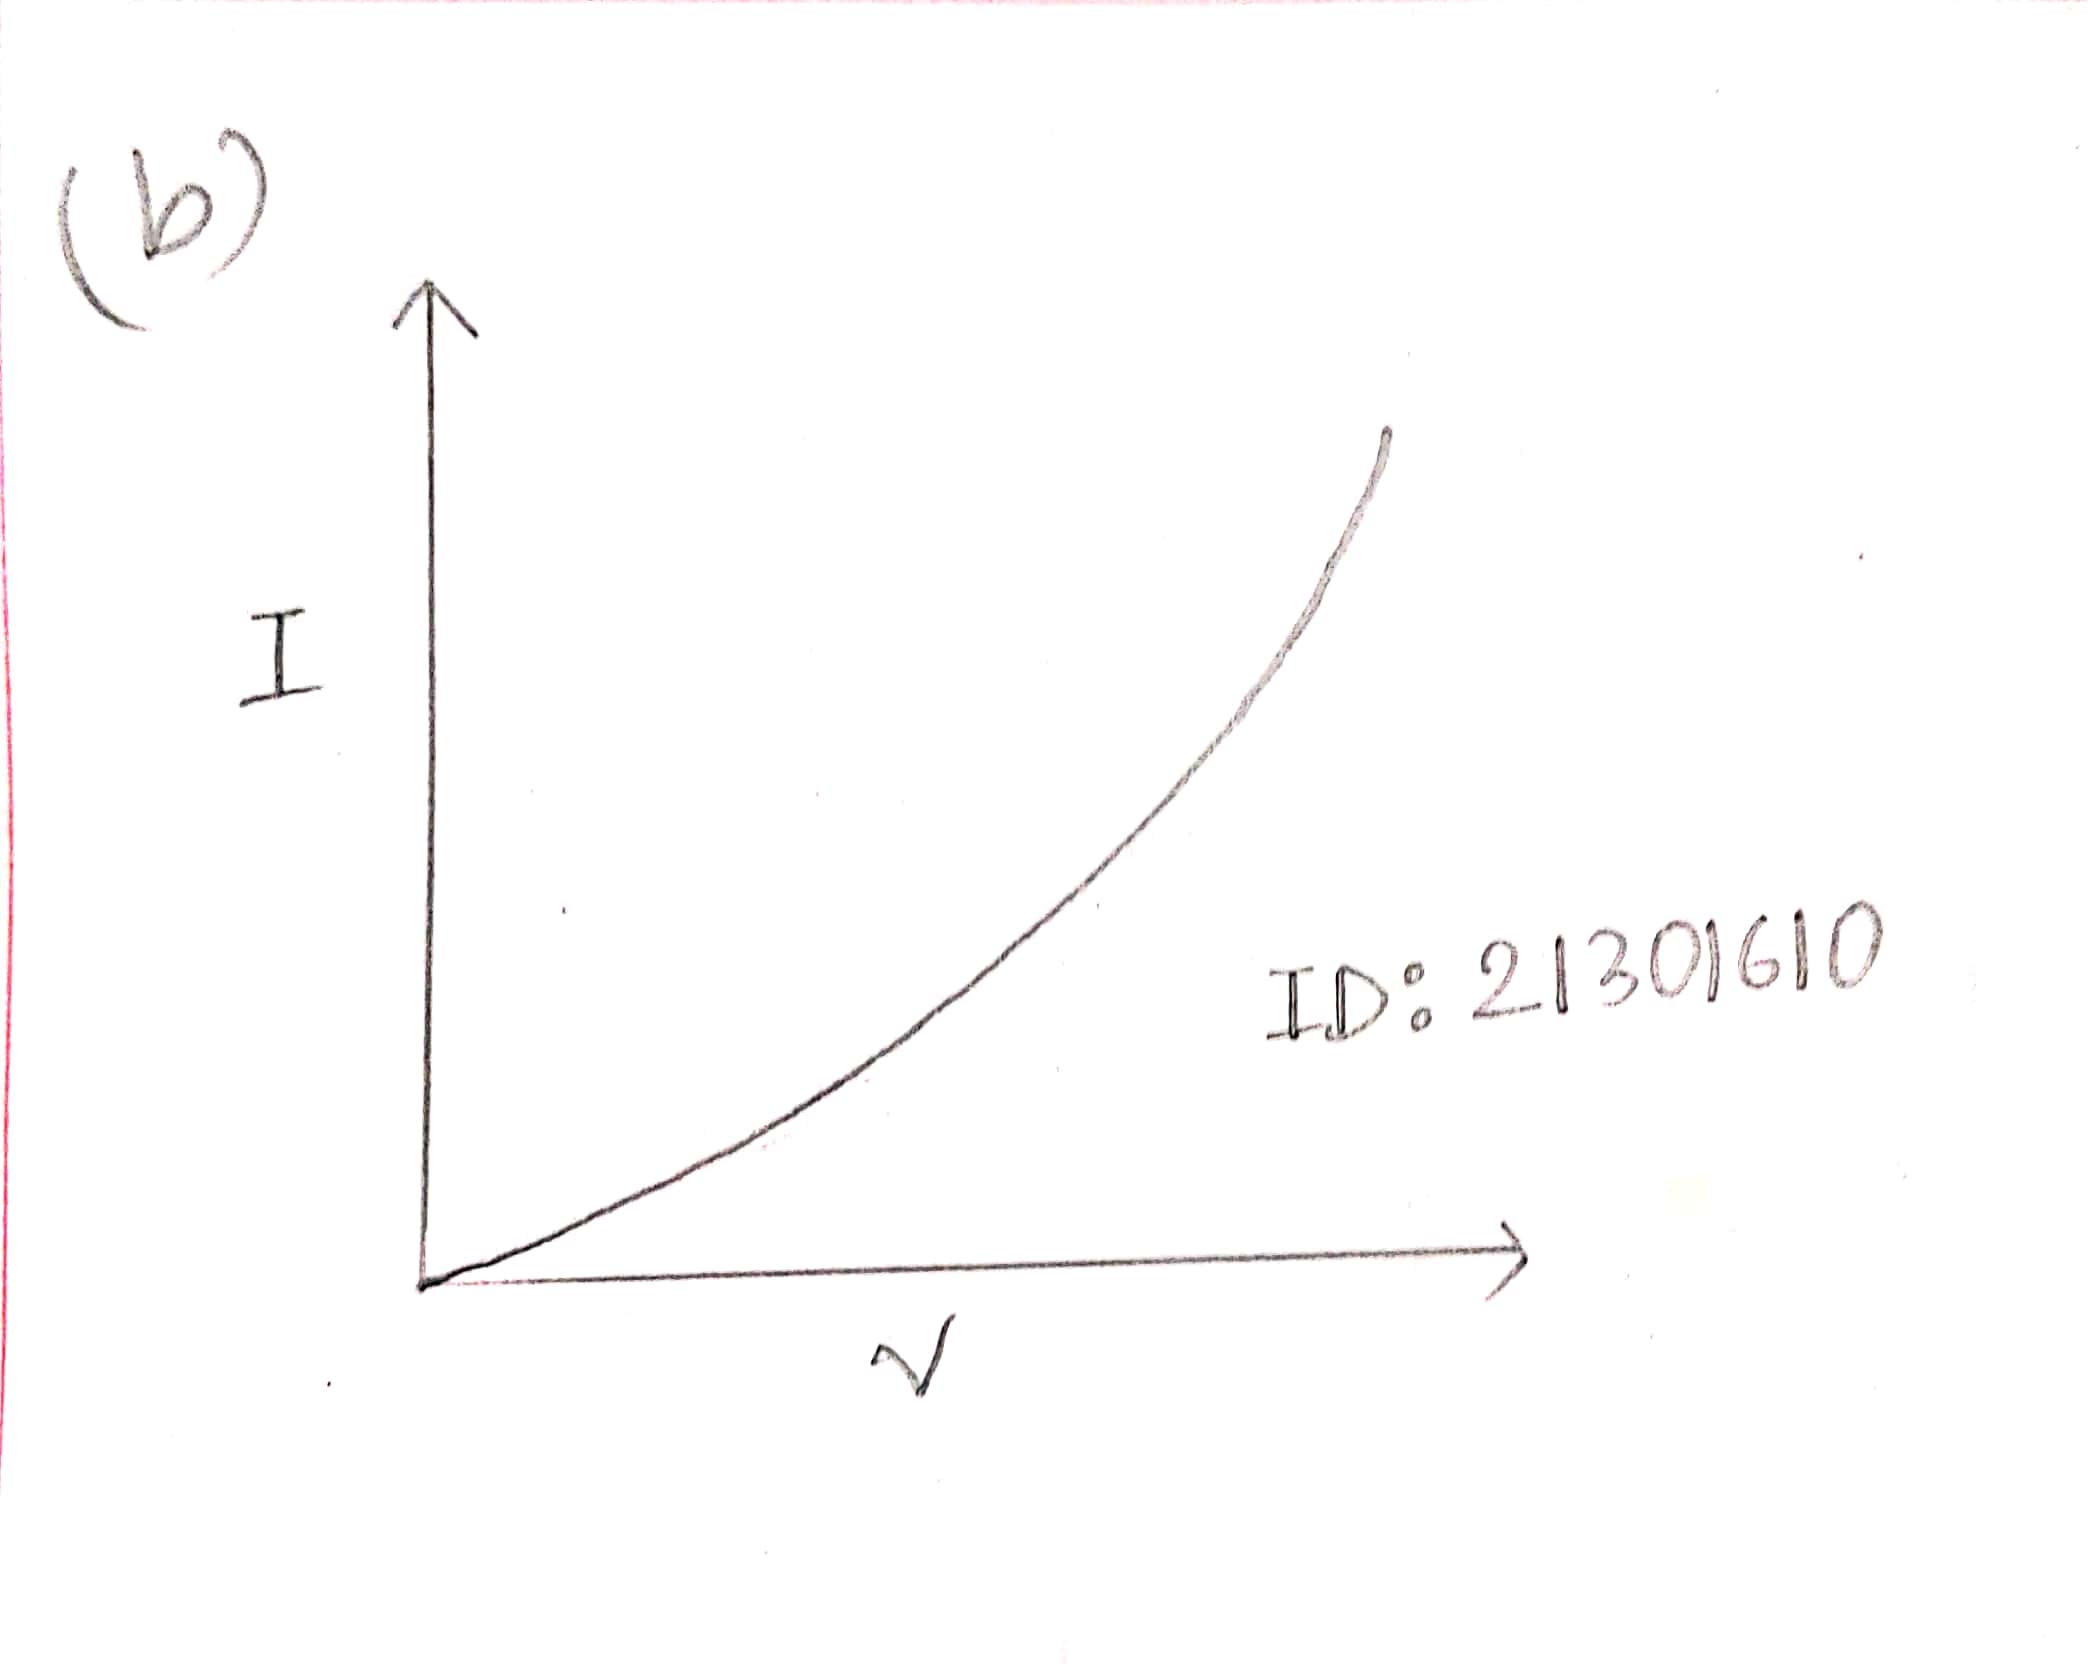 (b)
I
ID: 21301610
V